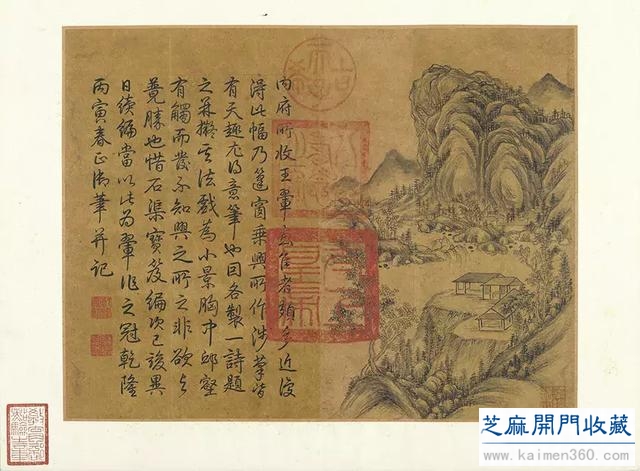 内府所收王翬佳者頗多近復
得此幅乃篷窗乘興所作涉筆皆
有天趣尤得意筆也因各製一詩題
之并擬其法戲為小景胸中邱壑
有觸而發不知興之所之非欲與
競勝也惜石渠寶笈編次已竣異
日續編當以此為翬作之冠乾隆
丙寅春正御筆并記
芝麻開門收藏
www.kaimen360.com